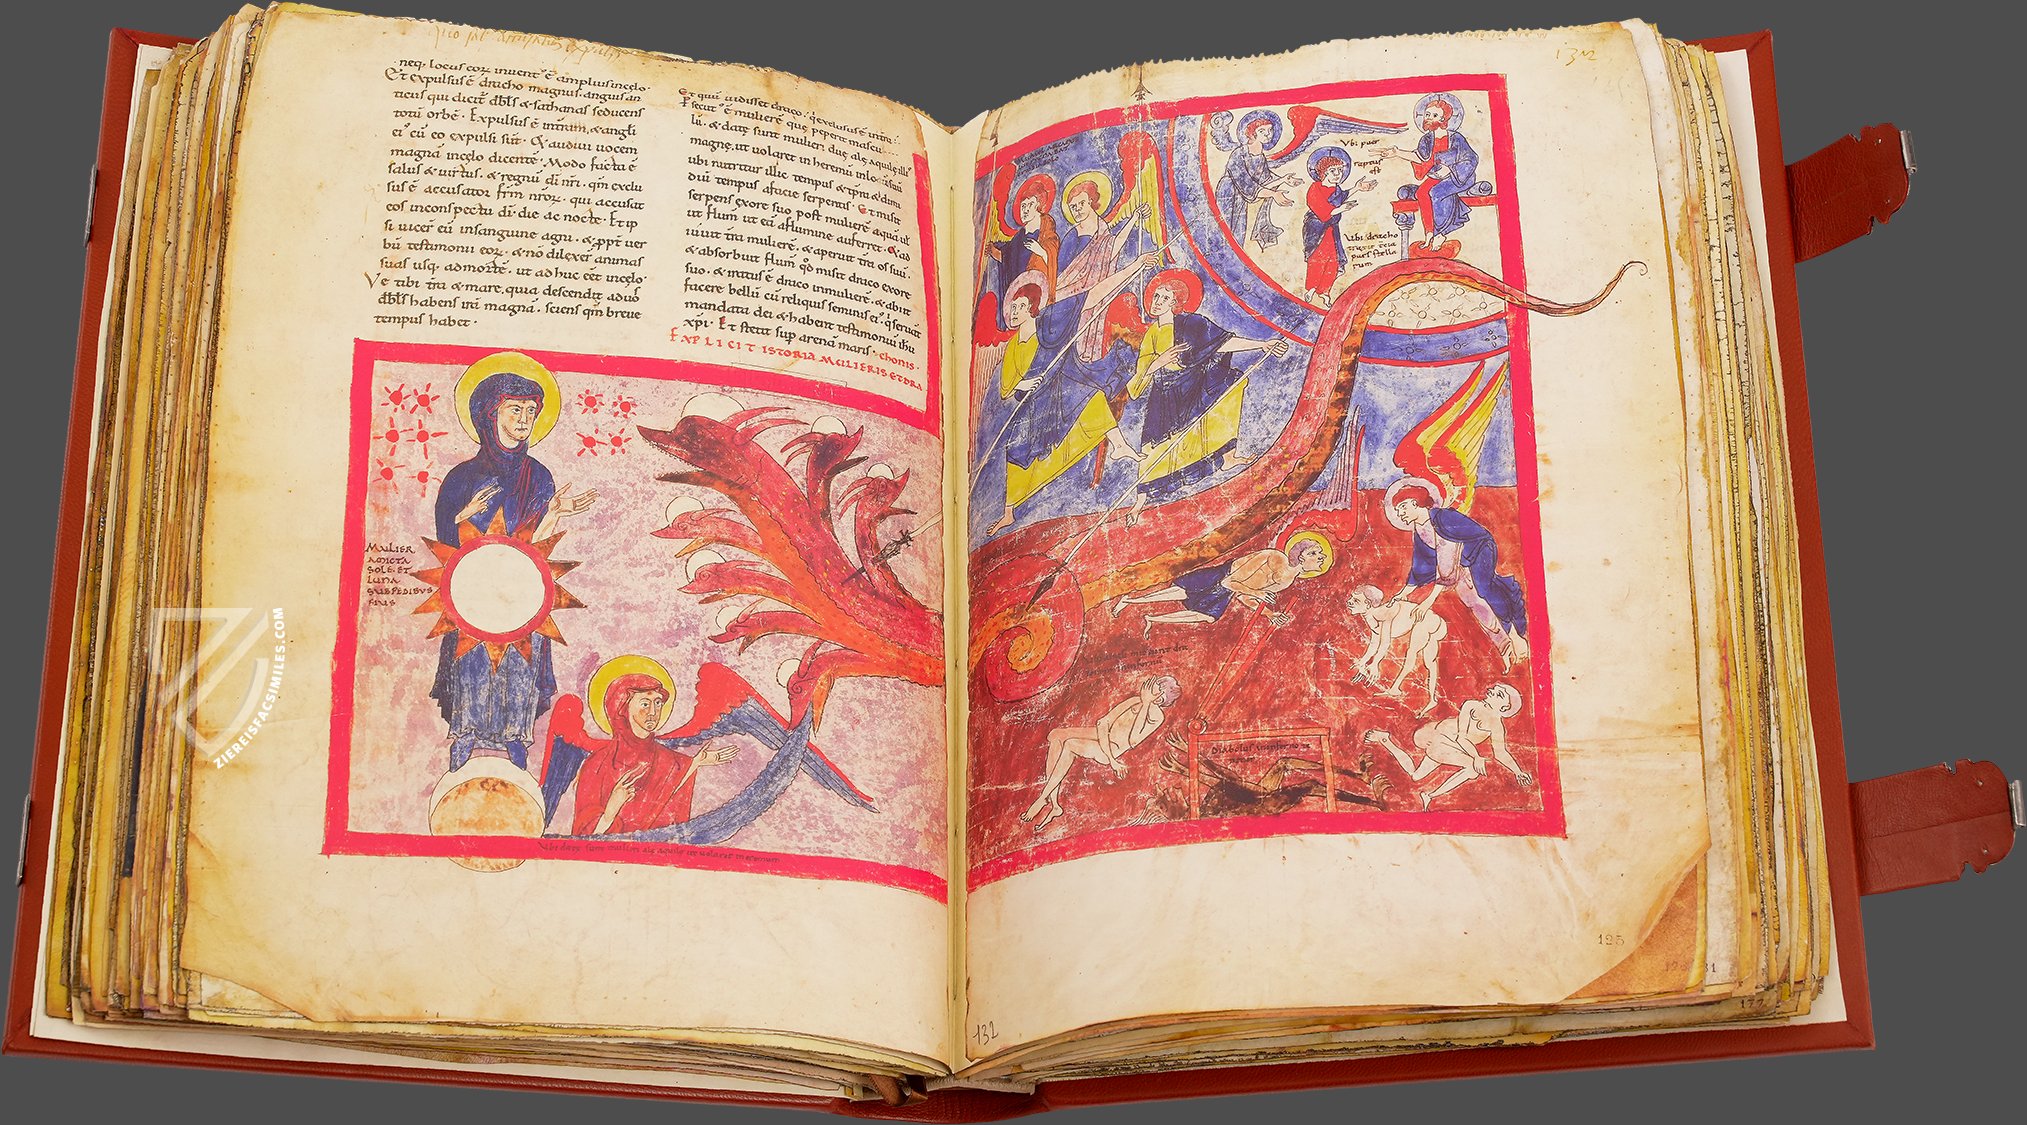 neq, locus eoꝝ inuent' ē ampliusincęlo·
Et expulsus ē dracho magnus·anguis an
ticus qui dicit̄ db̄ls & sathanas seducens
totū orbē· Expulsus ē intrram,&angli
ei' cū eo expulsi sūt· Et audiui uocem
magnā incęlo dicentē· Modo facta ē
salus & uirtus· & regnū di nr̄i· qm̄ exclu
sus ē accusator frm̄ nr̄oꝝ· qui accusat
eos inconspectu di· die ac nocte· Et ip
si uicer eū insanguine agni· & ꝓpt̄ uer
bū testimonii eoꝝ· & nō dilexer animas
suas usq, admortē· ut adhuc eēt incęlo·
Ve tibi tr̄a & mare, quia descendit aduos
db̄ls habens irā magnā· sciens qm̄ breue
tempus habet·
Et quū uidisset draco· qđ
secut' ē mulierē que peperit mascu
lū· & datę sunt mulieri duę alę aquilę illi'
magnę, ut uolaret in heremū inlocū suū
ubi nutritur illic tempus & tp̄ra & dimi
diū tempus afacie serpentis· Et misit
serpens exore suo post mulierē aquā ut
ut flum̄ ut eā aflumine auferret· Et ad
iuuit tr̄a mulierē· & aperuit tr̄a os suū·
& absorbuit flum̄ qđ misit draco exore
suo· & iratus ē draco inmulierē· & abiit
facere bellū cū reliquis seminis ei' q̇ seruāt
mandata dei & habent testimoniū ihu
xp̄i· Et stetit sup arenā maris· chonis·
EXPLICIT ISTORIA MULIERIS ET DRA
MULIER
AMICTA
SOLE·ET
LUNA
SUB PEDIBUS
EIUS
Vbi datę sunt mulieri alę aquilę ut uolaret in eremum
132
Vbi puer
raptus
est
Vbi dracho
traxit tercia
pars stella
rum
Diabolus ininferno
125
131
177
132
ZIEREISFACSIMILES.COM